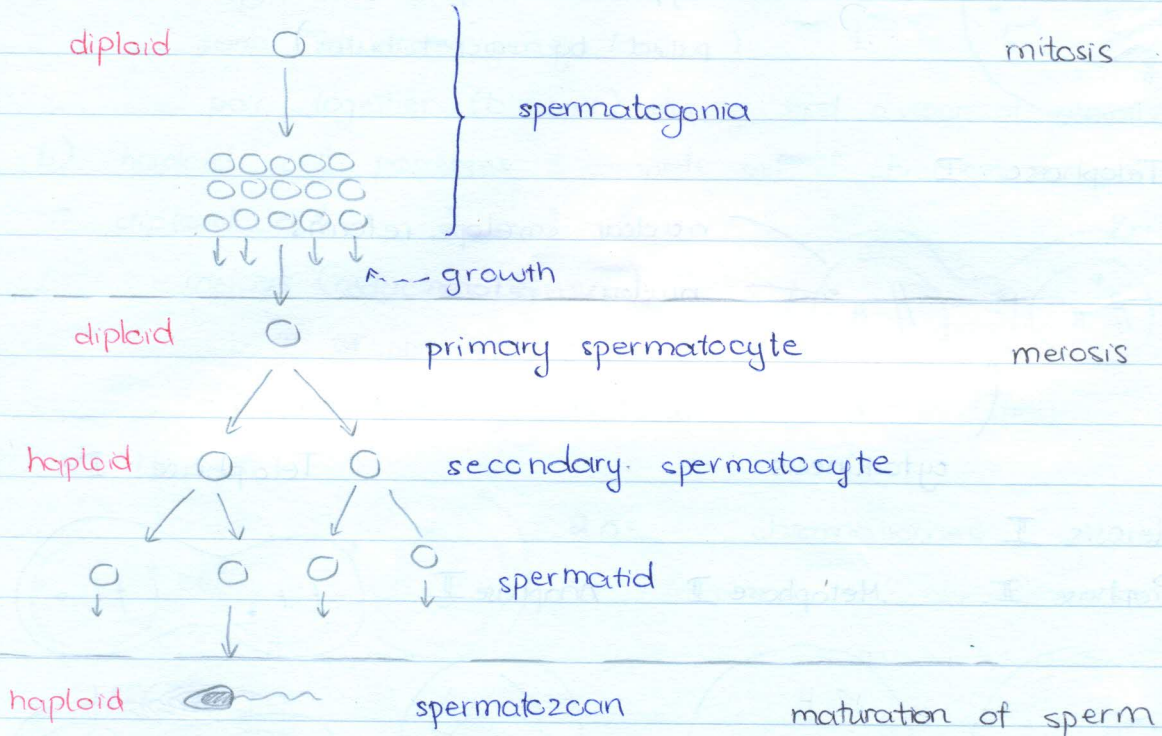 diploid mitosis
spermatogonia
growth
diploid primary spermatocyte meiosis
haploid secondary spermatocyte
spermatid
haploid spermatozoan maturation of sperm